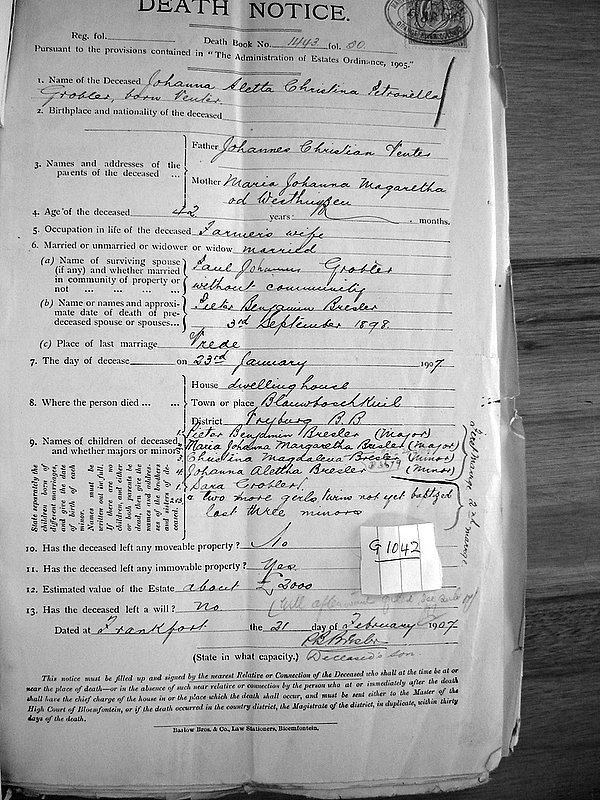 DEATH NOTICE.
Reg. fol. Death Book No. 1443 fol. 00
Pursuant to the provisions contained in "The Administration of Estates Ordinance, 1905."
1. Name of the Deceased Johanna Aletta Christina Petronella
Grobler, born Venter
2. Birthplace and nationality of the deceased
3. Names and addresses of the parents of the deceased ...
Father Johannes Christian Venter
Mother Maria Johanna Magaretha
vd Westhuyzen
4. Age of the deceased 42 years: months.
5. Occupation in life of the deceased Farmer's wife
6. Married or unmarried or widower or widow married
(a) Name of surviving spouse (if any) and whether married in community of property or not ... ... ... ...
Paul Johannes Grobler
without community
(b) Name or names and approximate date of death of predeceased spouse or spouses...
Pieter Benjamin Bresler
3rd September 1898
(c) Place of last marriage Vrede
7. The day of decease on 23rd January 1907.
8. Where the person died ... ...
House dwelling house
Town or place Blauwboschkuil
District Vryburg B.B
9. Names of children of deceased, and whether majors or minors
State separately the children born of different marriages, and give the date of birth of each minor.
Names must be written out in full.
If there are no children, and either or both parents be dead, then give the names and addresses of the brothers and sisters of deceased.
1. Pieter Benjamin Bresler (Major)
2. Maria Johanna Margaretha Bresler (Major)
3. Christina Magdalena Bresler (Minor)
4. Johanna Alettha Bresler (Minor)
1. Sara Grobler
2.3. & two more girls, twins not yet baptized
last three minors
G 1042
10. Has the deceased left any moveable property? No
11. Has the deceased left any immovable property? Yes
12. Estimated value of the Estate about £2000
13. Has the deceased left a will? No
Dated at Frankfort the 21 day of February 1907
P B Bresler
(State in what capacity.) Deceased's son
This notice must be filled up and signed by the nearest Relative or Connection of the Deceased who shall at the time be at or
near the place of death—or in the absence of such near relative or connection by the person who at or immediately after the death
shall have the chief charge of the house in or the place which the death shall occur, and must be sent either to the Master of the
High Court of Bloemfontein, or if the death occurred in the country district, the Magistrate of the district, in duplicate, within thirty
days of the death.
Barlow Bros. & Co., Law Stationers, Bloemfontein.